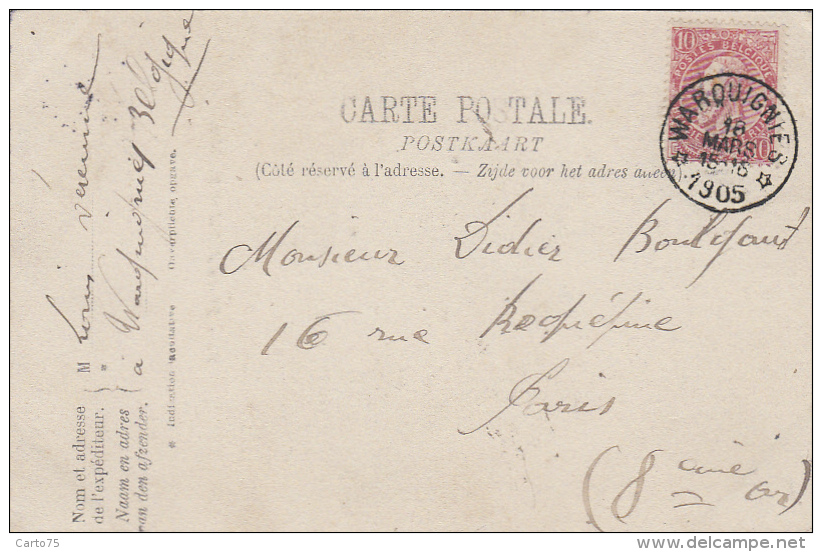 10
POSTES BELGIQUE
WARQUIGNIES
18
MARS
1905
CARTE POSTALE.
POSTKAART
(Côté réservé à l'adresse. — Zijde voor het adres alleen).
Monsieur Didier
16 rue
Paris
(8 ème arr
Nom et adresse
de l'expéditeur.
Naam en adres
van den afzender.
M Louis
à Warquignies Belgique
* Indication facultative
Carto75
www.delcampe.net